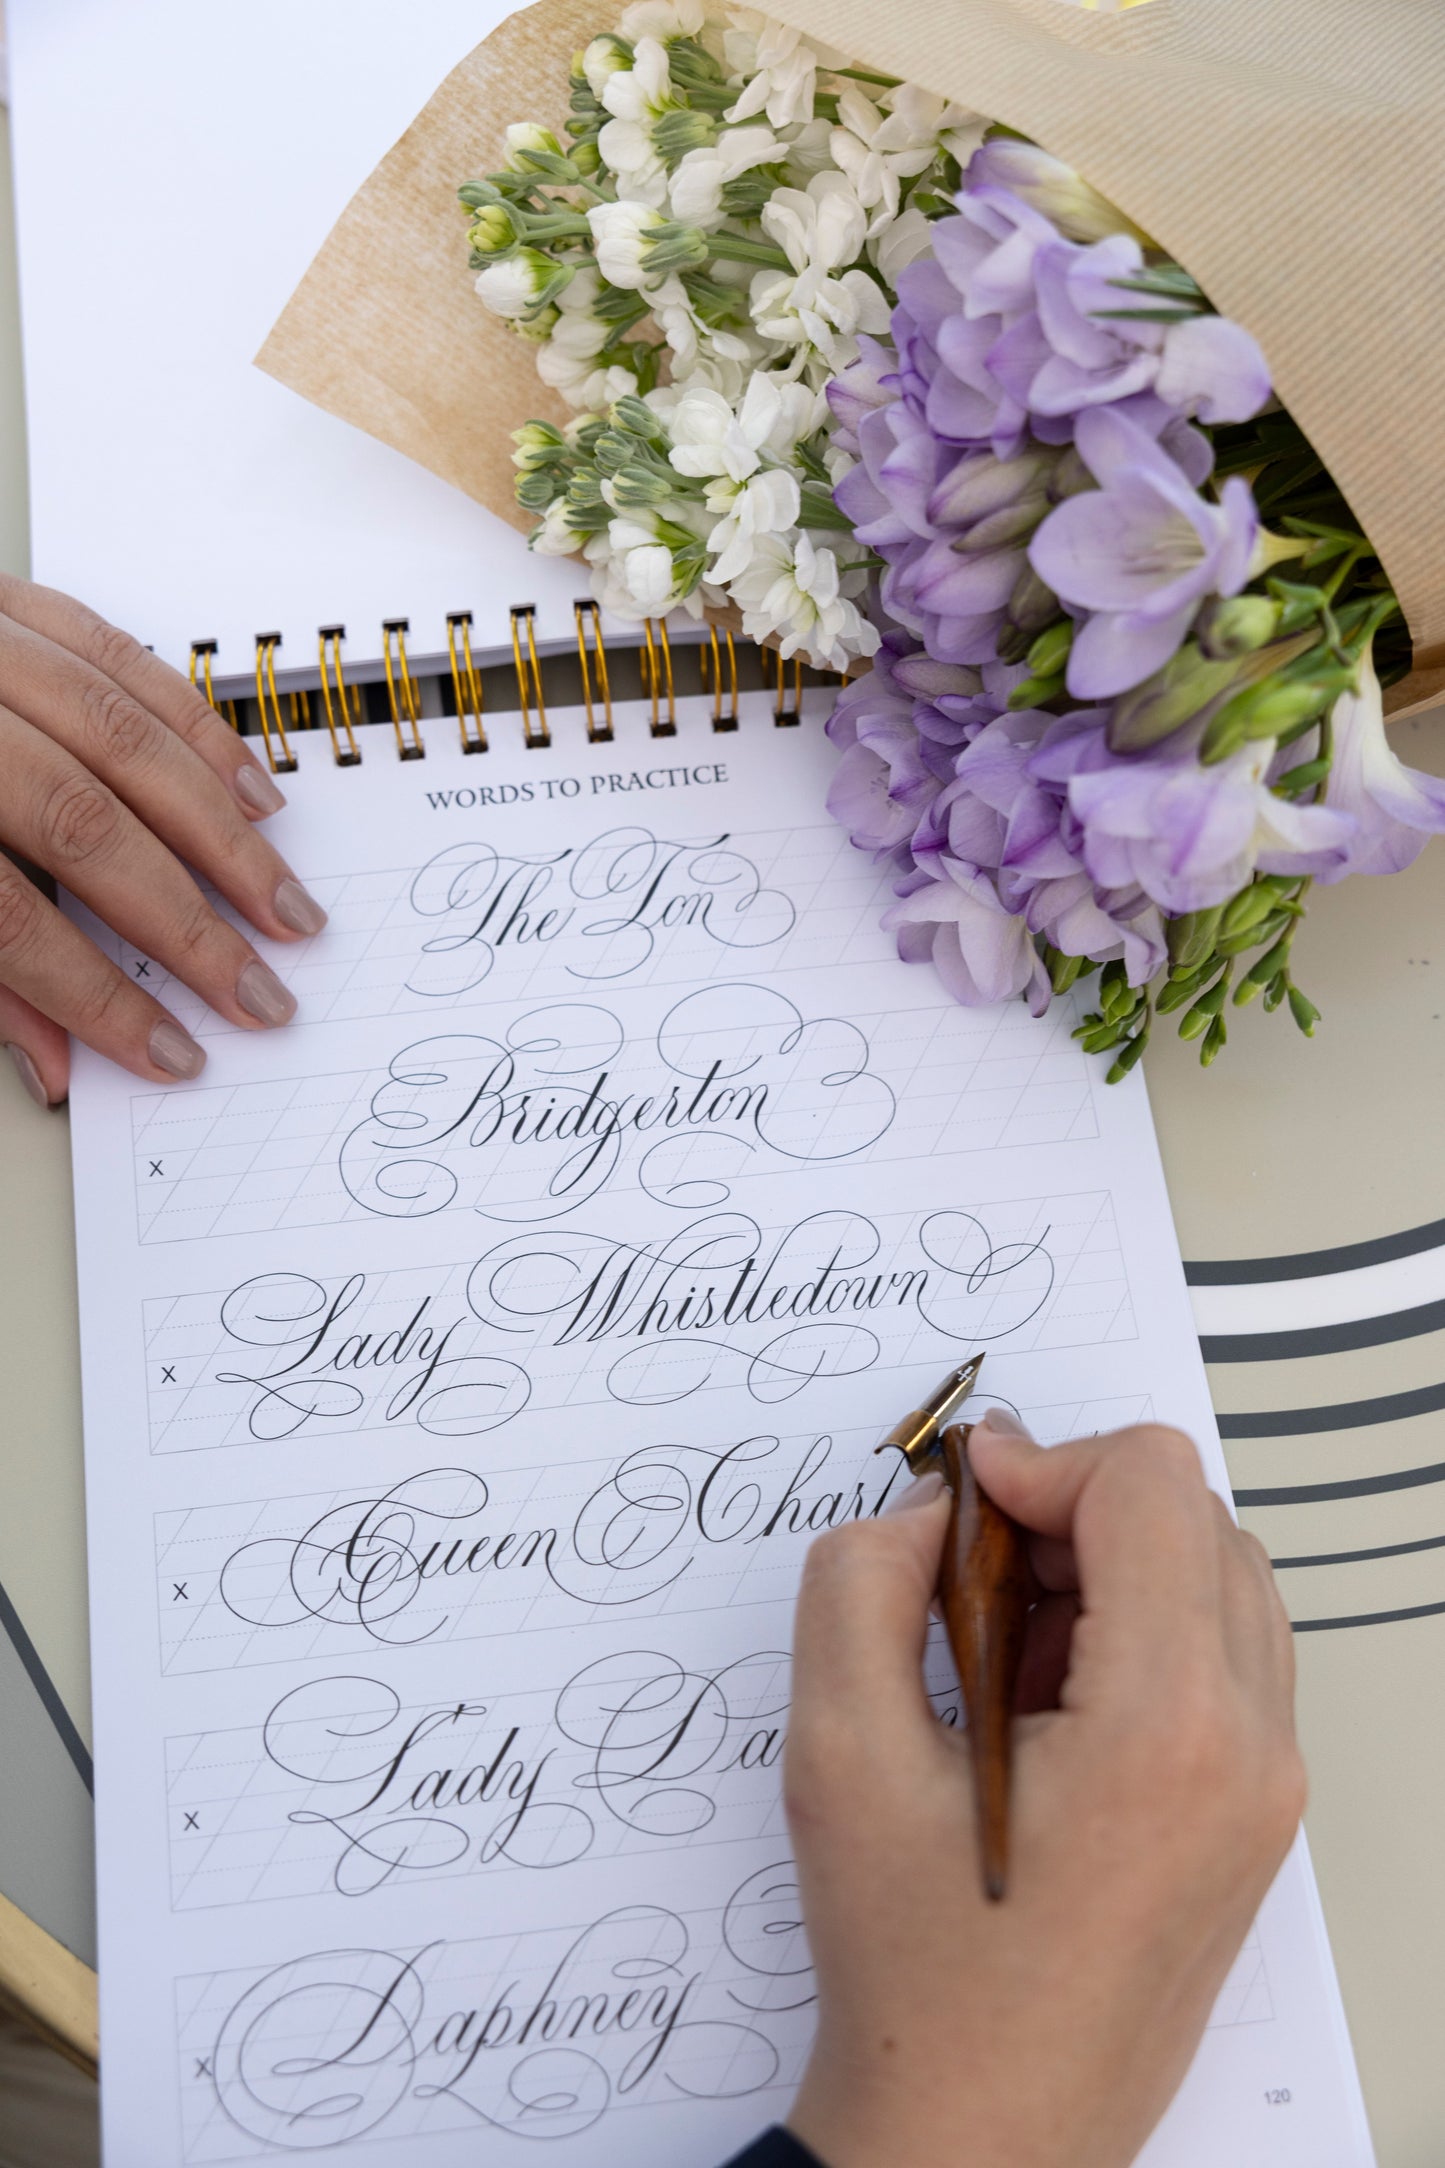 WORDS TO PRACTICE
The Ton
x
Bridgerton
x
Lady Whistledown
x
Queen
x
Lady
x
Daphney
x
120